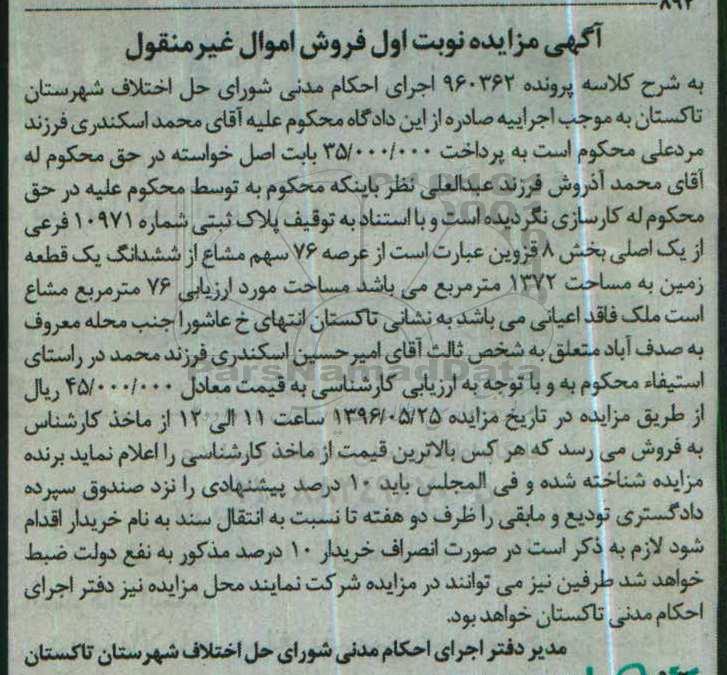 ۸۹۲
آگهی مزایده نوبت اول فروش اموال غیرمنقول
به شرح کلاسه پرونده ۹۶۰۳۶۲ اجرای احکام مدنی شورای حل اختلاف شهرستان
تاکستان به موجب اجراییه صادره از این دادگاه محکوم علیه آقای محمد اسکندری فرزند
مردعلی محکوم است به پرداخت ۳۵/۰۰۰/۰۰۰ بابت اصل خواسته در حق محکوم له
آقای محمد آذروش فرزند عبدالعلی نظر باینکه محکوم به توسط محکوم علیه در حق
محکوم له کارسازی نگردیده است و با استناد به توقیف پلاک ثبتی شماره ۱۰۹۷۱ فرعی
از یک اصلی بخش ۸ قزوین عبارت است از عرصه ۷۶ سهم مشاع از ششدانگ یک قطعه
زمین به مساحت ۱۳۷۲ مترمربع می باشد مساحت مورد ارزیابی ۷۶ مترمربع مشاع
است ملک فاقد اعیانی می باشد به نشانی تاکستان انتهای خ عاشورا جنب محله معروف
به صدف آباد متعلق به شخص ثالث آقای امیرحسین اسکندری فرزند محمد در راستای
استیفاء محکوم به و با توجه به ارزیابی کارشناسی به قیمت معادل ۴۵/۰۰۰/۰۰۰ ریال
از طریق مزایده در تاریخ مزایده ۱۳۹۶/۰۵/۲۵ ساعت ۱۱ الی ۱۲ از ماخذ کارشناس
به فروش می رسد که هر کس بالاترین قیمت از ماخذ کارشناسی را اعلام نماید برنده
مزایده شناخته شده و فی المجلس باید ۱۰ درصد پیشنهادی را نزد صندوق سپرده
دادگستری تودیع و مابقی را ظرف دو هفته تا نسبت به انتقال سند به نام خریدار اقدام
شود لازم به ذکر است در صورت انصراف خریدار ۱۰ درصد مذکور به نفع دولت ضبط
خواهد شد طرفین نیز می توانند در مزایده شرکت نمایند محل مزایده نیز دفتر اجرای
احکام مدنی تاکستان خواهد بود.
مدیر دفتر اجرای احکام مدنی شورای حل اختلاف شهرستان تاکستان
ParsNamadData